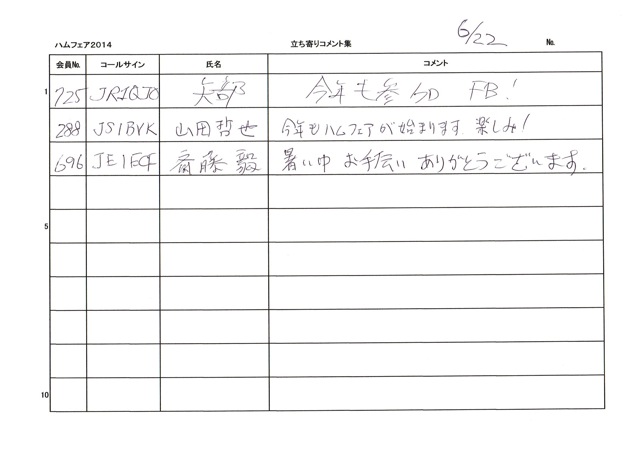 ハムフェア2014 立ち寄りコメント集 6/22 №
会員№ コールサイン 氏名 コメント
1 725 JR1QJO 矢部 今年も参加 FB!
288 JS1BVK 山田哲也 今年もハムフェアが始まります 楽しみ!
696 JE1ECF 斎藤 毅 暑い中 お手伝い ありがとうございます.
5
10